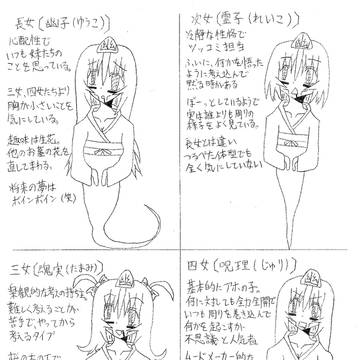 長女(幽子(ゆうこ))
心配性で
いつも妹たちの
ことを思っている。
三女、四女たちより
胸が小さいことを
気にしている。
趣味は生花。
他のお墓の花を
直してまわる。
将来の夢は
ボインボイン(笑)
次女(霊子(れいこ))
冷静な性格で
ツッコミ担当
ふいに、何かを悟った
ように考え込んで
黙る時がある
ぼーっとしているようで
実は誰よりも周りの
様子をよく見ている。
長女とは違い
つるぺた体型でも
全く気にしていない
三女(魂実(たまみ))
楽観的な考えの持ち主
難しく考えることが
苦手で、やってから
考えるタイプ
四女(呪理(じゅり))
基本的にアホの子。
何に対しても全力全開で
いつも周りを巻き込んで
何かを起こすが
不思議と人気者
ムードメーカー的な